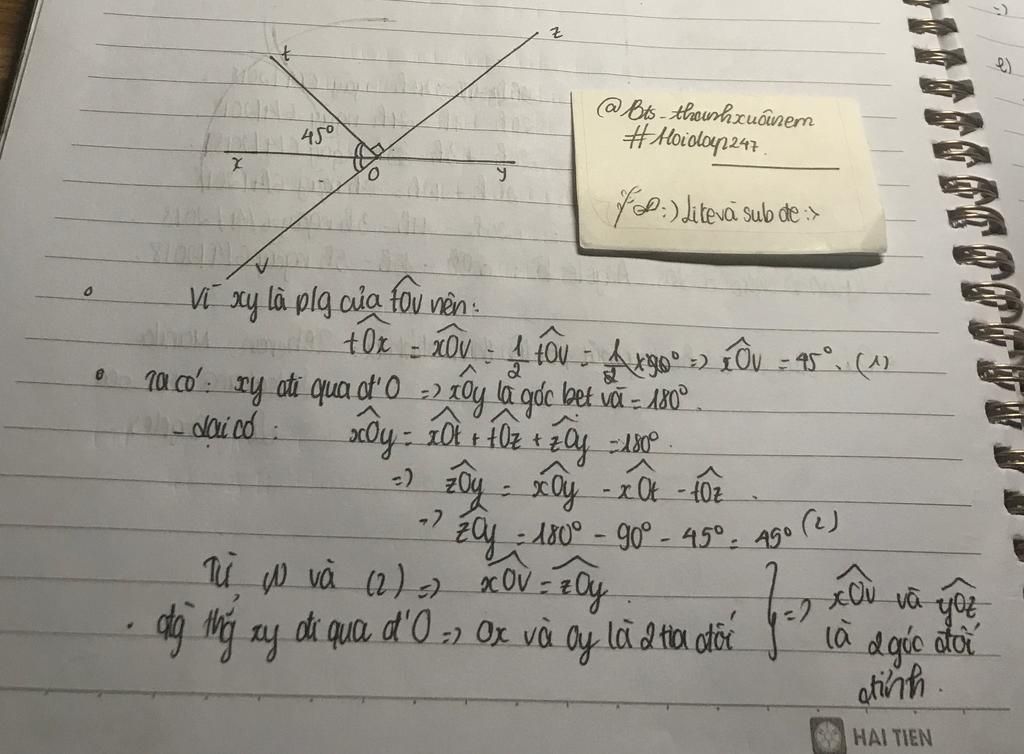 t
z
45°
x
O
y
v
@Bts_thanhxuânem
#Hoidap247
:) Like và sub de :>
Vì xy là plg của tÔv nên:
tÔx = xÔv = 1/2 tÔv = 1/2 × 90° => xÔv = 45°. (1)
Ta có: xy đi qua đ'O => xÔy là góc bẹt và = 180°.
Lại có: xÔy = xÔt + tÔz + zÔy = 180°.
=> zÔy = xÔy - xÔt - tÔz.
=> zÔy = 180° - 90° - 45° = 45° (2)
Từ (1) và (2) => xÔv = zÔy.
đg thg̉ xy đi qua đ'O => Ox và Oy là 2 tia đối
} => xÔv và yÔz
là 2 góc đối
đỉnh.
HAI TIEN